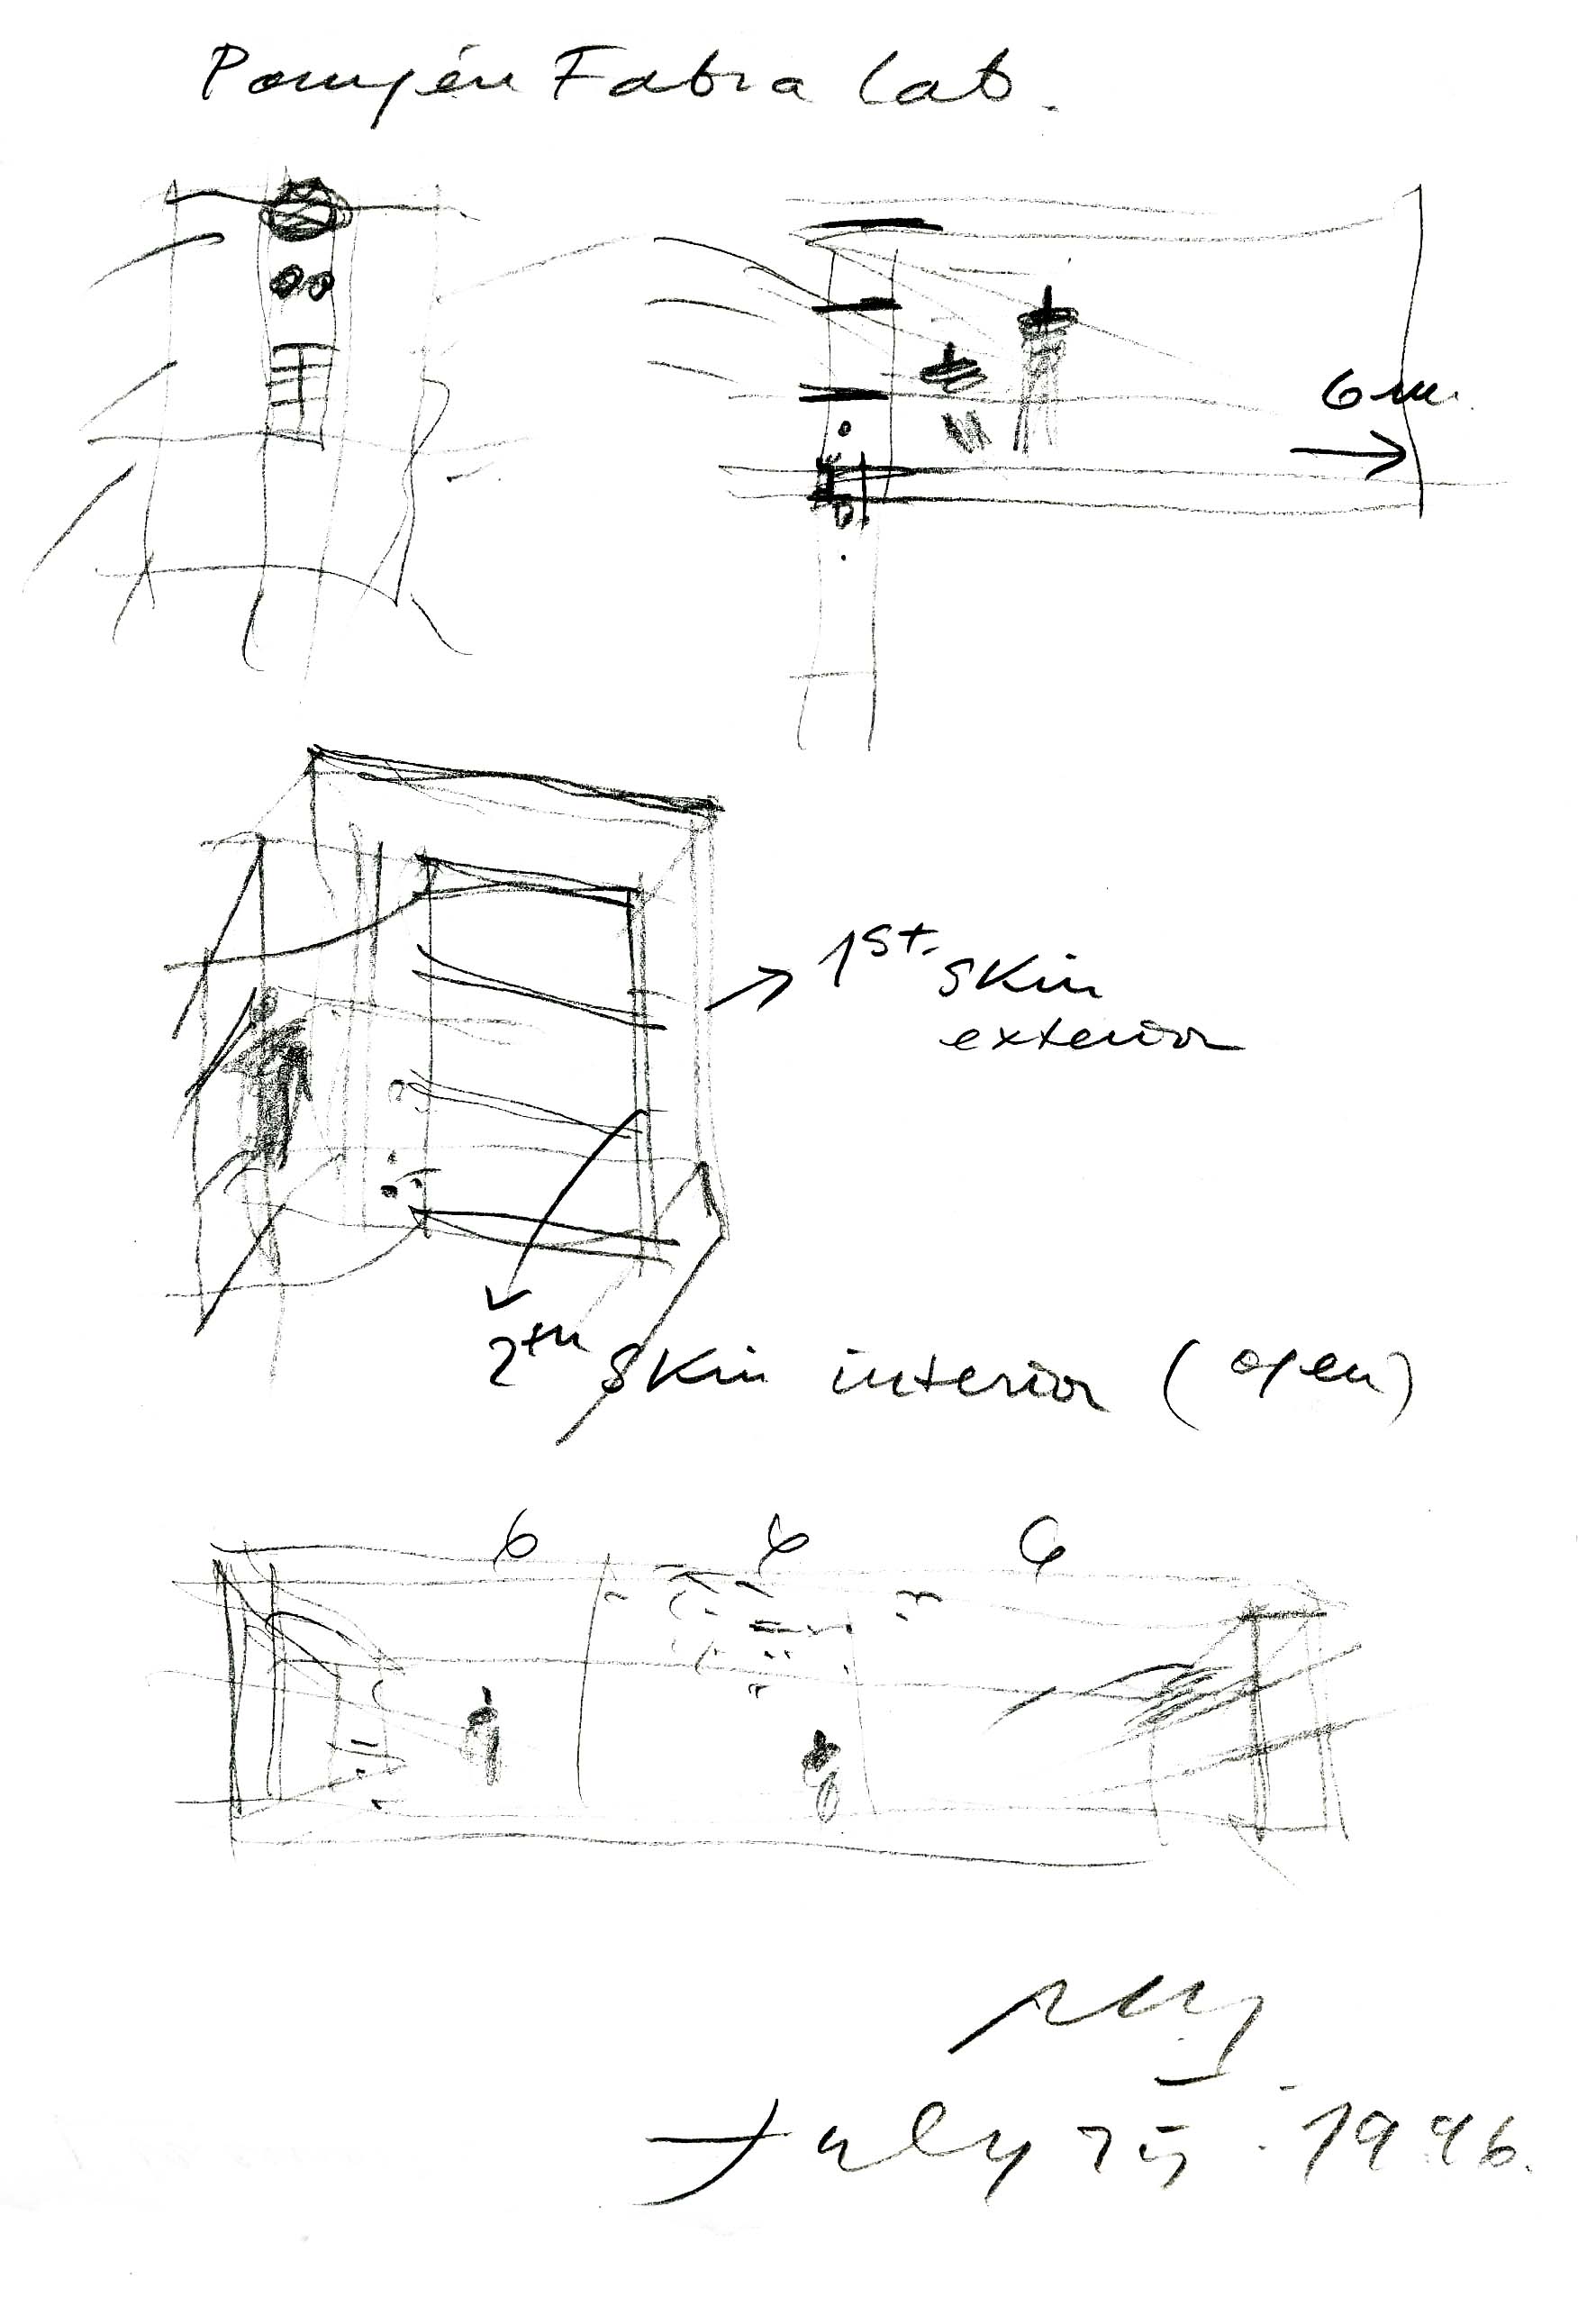 Pompéu Fabra Lab.
6 m.
1st. skin
exterior
2th skin interior (open)
6 6 6
July 25 . 1996.